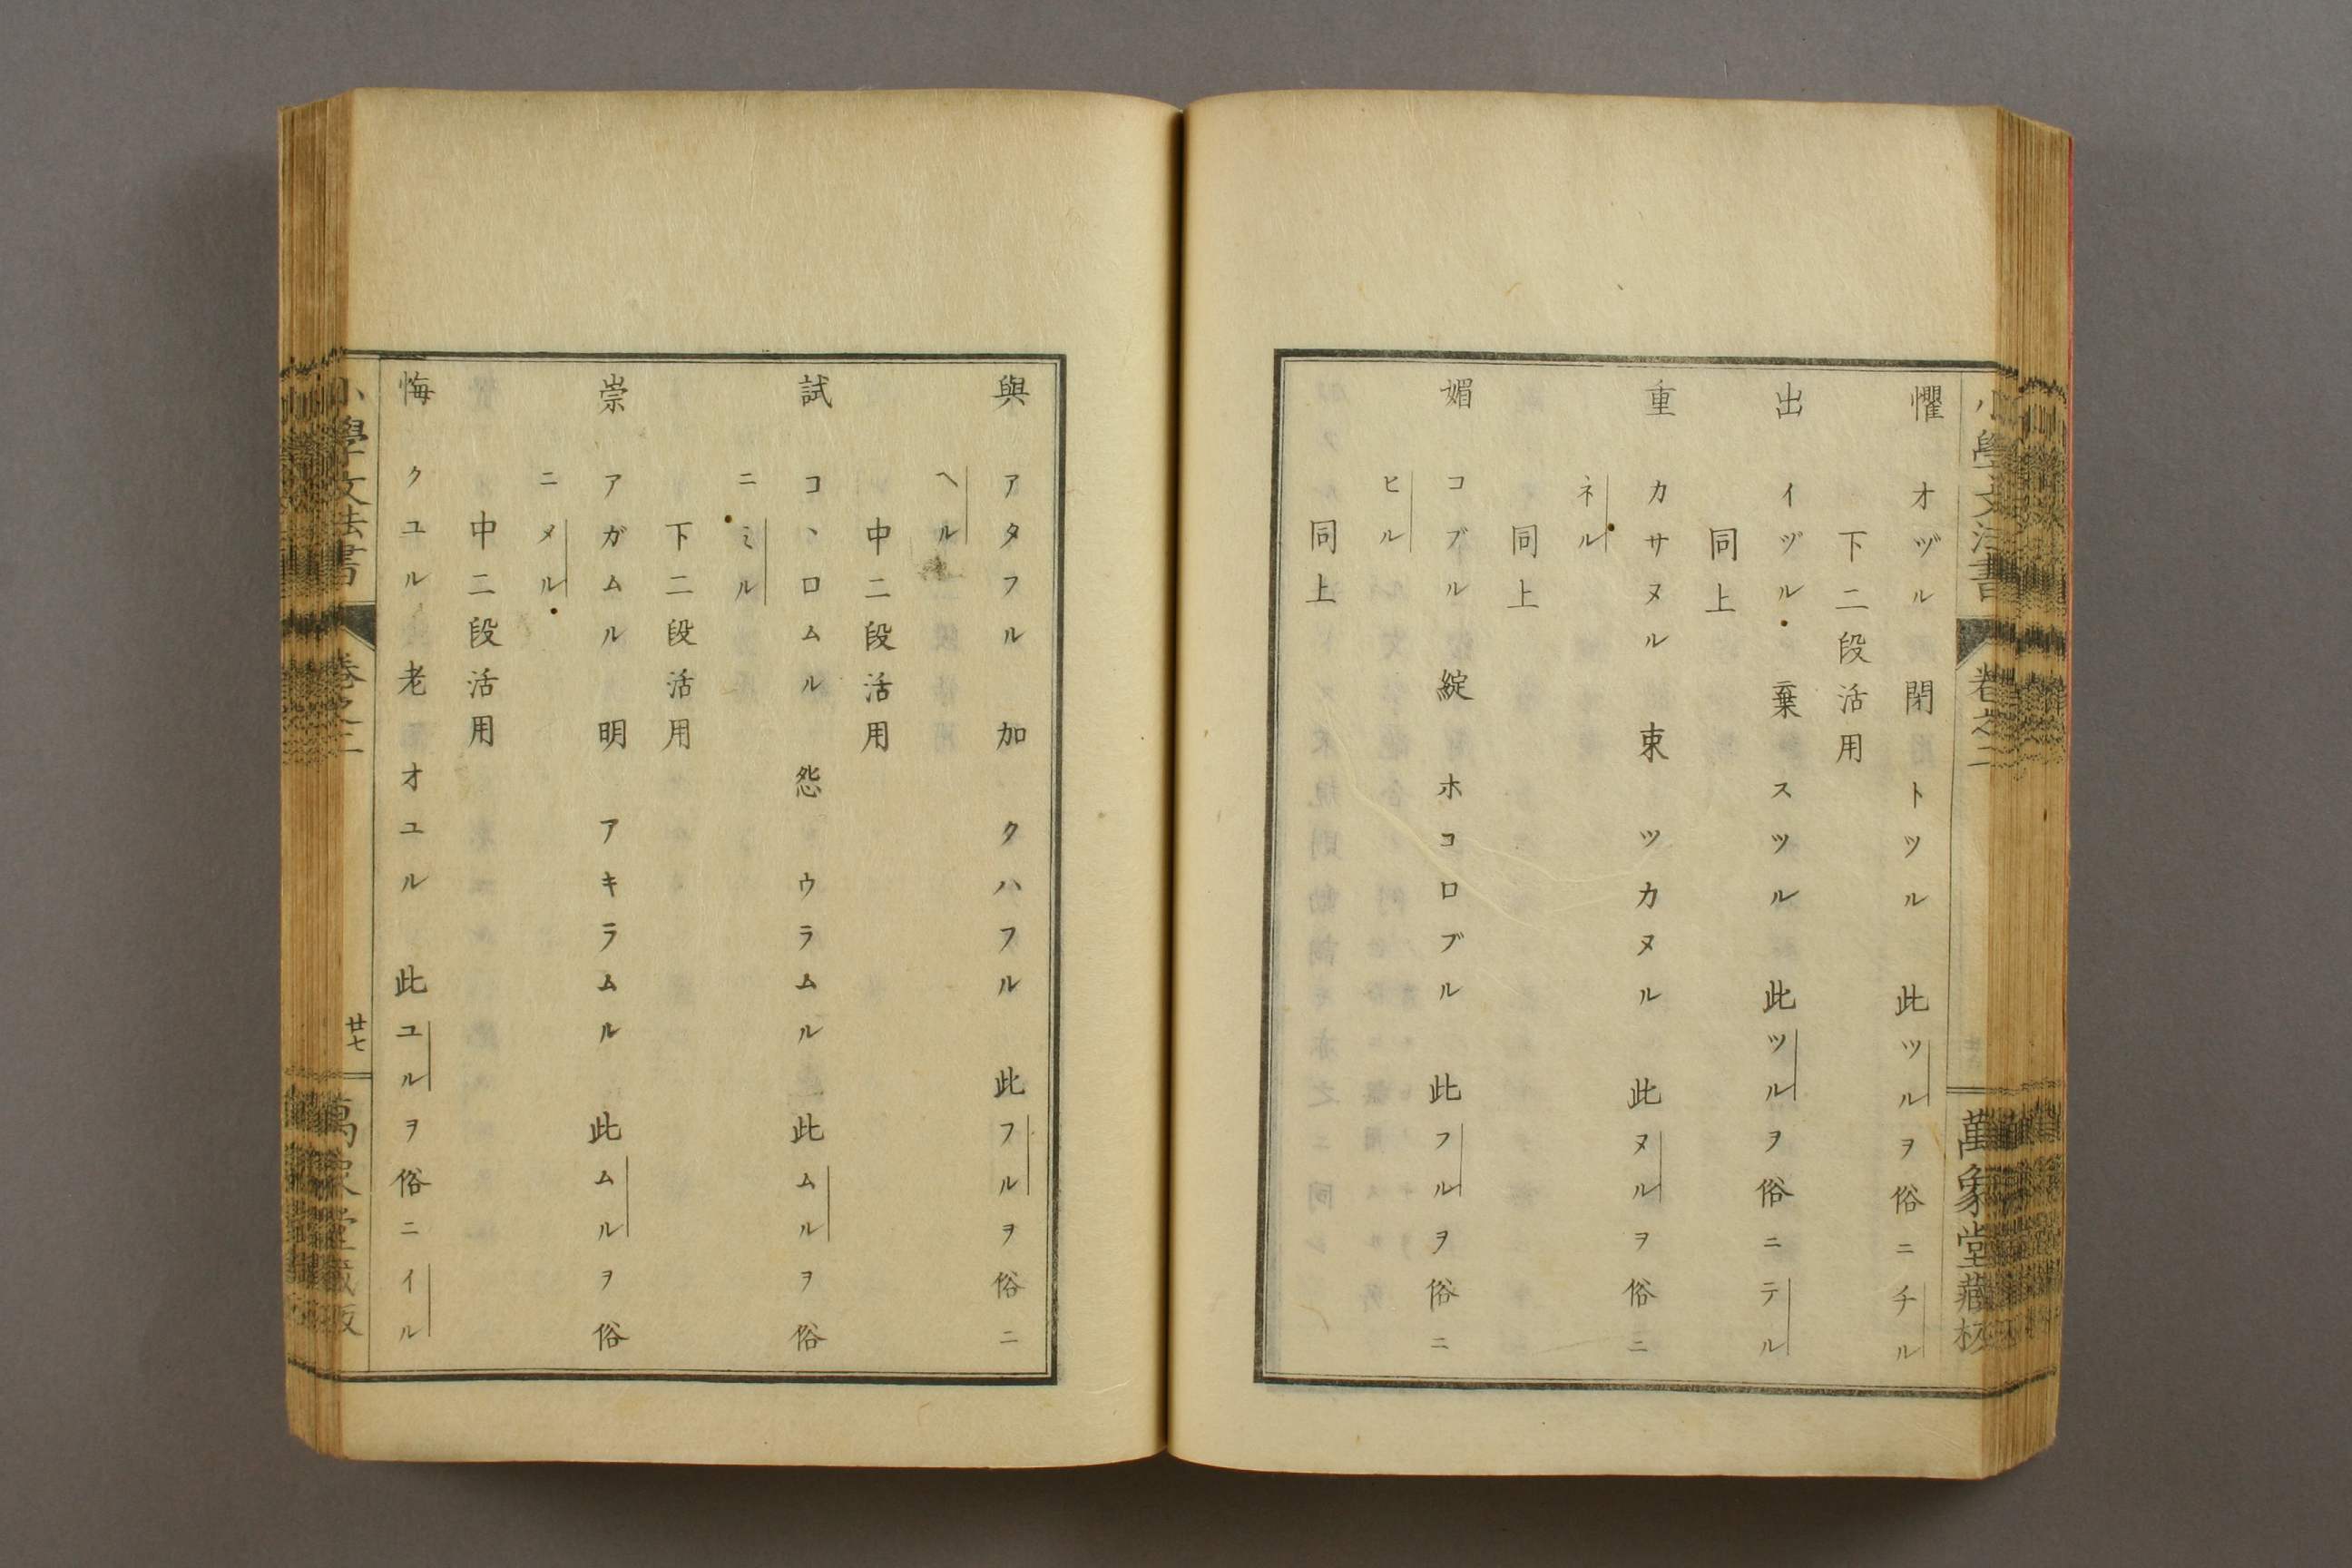 小學文法書 卷之二 萬象堂藏板
懼 オヅル 閉 トツル 此ツルヲ俗ニチル
下二段活用
出 イヅル 棄 スツル 此ツルヲ俗ニテル
同上
重 カサヌル 束 ツカヌル 此ヌルヲ俗ニ
ネル
同上
媚 コブル 綻 ホコロブル 此フルヲ俗ニ
ヒル
同上
與 アタフル 加 クハフル 此フルヲ俗ニ
ヘル
中二段活用
試 コヽロムル 怨 ウラムル 此ムルヲ俗
ニミル
下二段活用
崇 アガムル 明 アキラムル 此ムルヲ俗
ニメル
中二段活用
悔 クユル 老 オユル 此ユルヲ俗ニイル
小學文法書 卷之二 廿七 萬象堂藏板